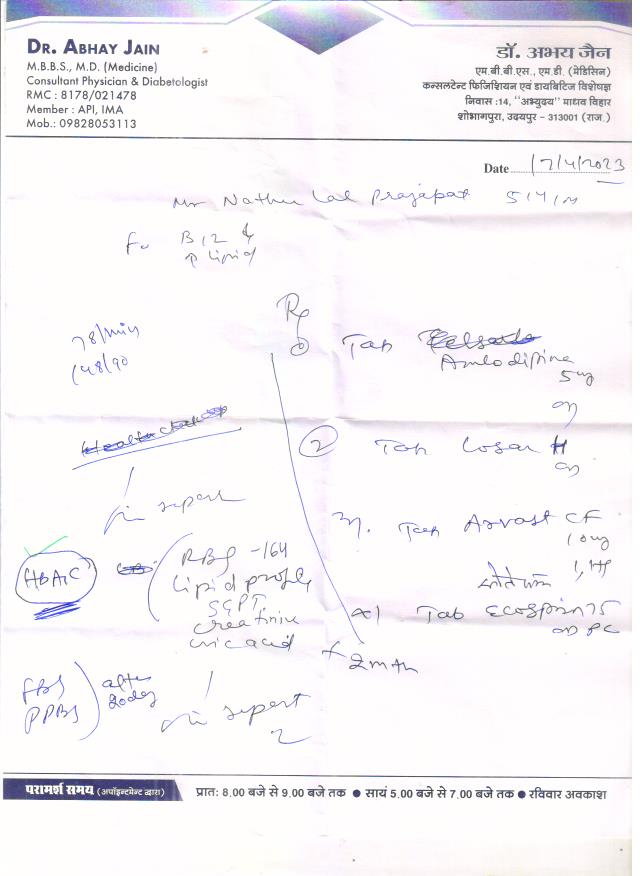 DR. ABHAY JAIN
M.B.B.S., M.D. (Medicine)
Consultant Physician & Diabetologist
RMC : 8178/021478
Member : API, IMA
Mob.: 09828053113
डॉ. अभय जैन
एम.बी.बी.एस., एम.डी. (मेडिसिन)
कन्सलटेन्ट फिजिशियन एवं डायबिटिज विशेषज्ञ
निवास :14, "अभ्युदय" माधव विहार
शोभागपुरा, उदयपुर - 313001 (राज.)
Date 17/4/2023
Mr Nathu Lal Prajapat 51 / M
B12 &
↑ Lipid
Rx
78/min
148/90
Tab
Amlodipine
5 mg
2 Tab Losar H
report
3. Tab Arvast CF
10 mg
HbA1C
RBS -164
Lipid profile
SGPT
creatinine
uric acid
4) Tab Ecosprin 75
PC
FBS
PPBS
after
report
परामर्श समय (अपॉइन्टमेन्ट द्वारा) प्रातः 8.00 बजे से 9.00 बजे तक ● सायं 5.00 से 7.00 बजे तक ● रविवार अवकाश